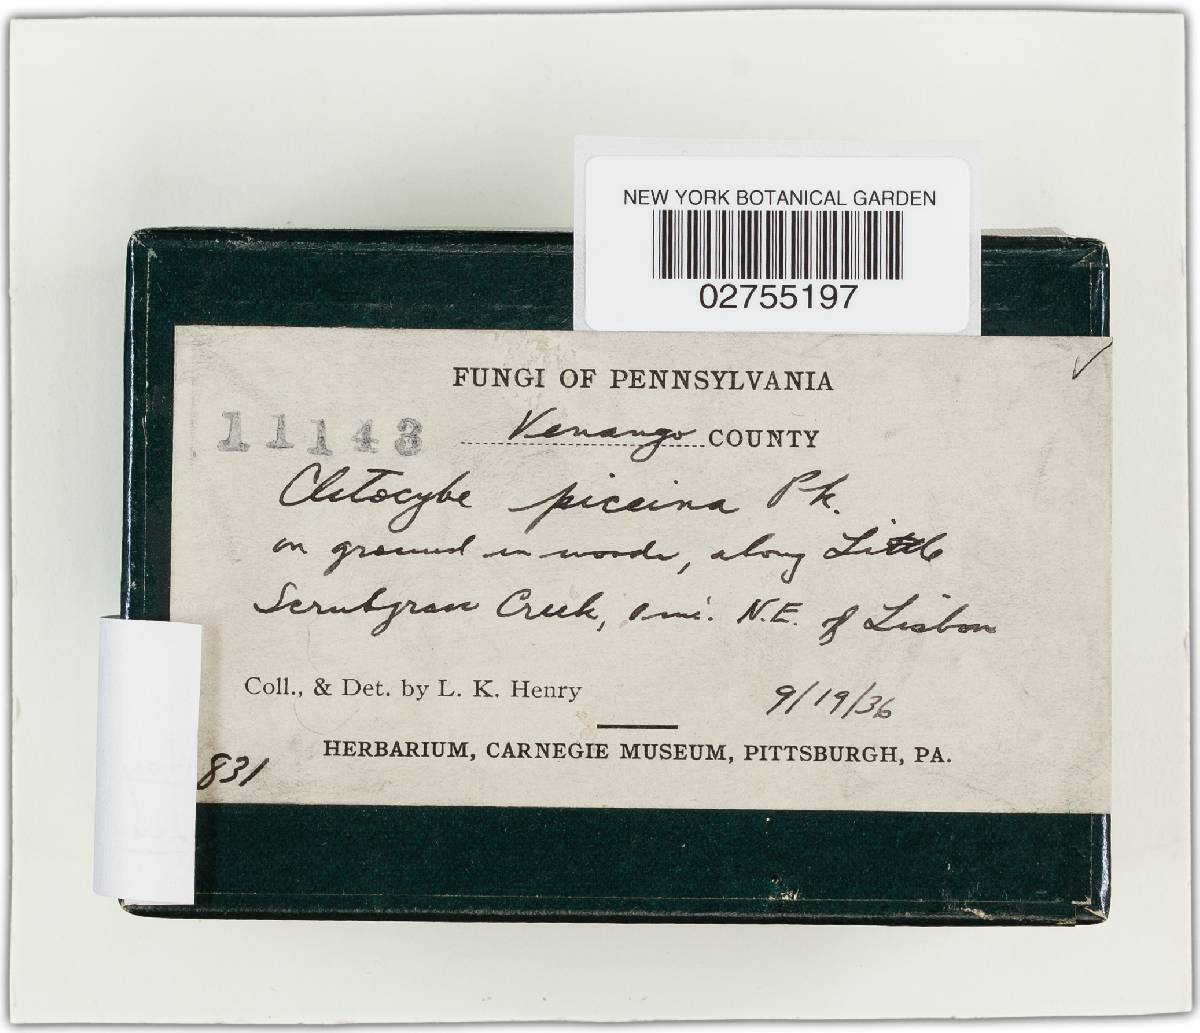 NEW YORK BOTANICAL GARDEN
02755197
FUNGI OF PENNSYLVANIA
11143 Venango COUNTY
Clitocybe piceina Pk.
on ground in woods, along Little
Scrubgrass Creek, mi. N.E. of Lisbon
Coll., & Det. by L. K. Henry 9/19/36
HERBARIUM, CARNEGIE MUSEUM, PITTSBURGH, PA.
831